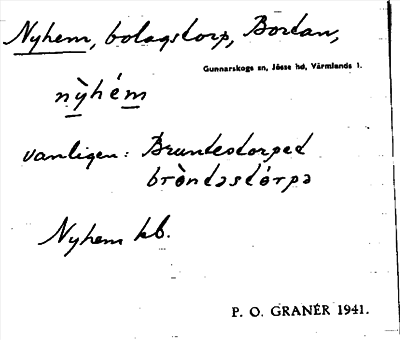 Nyhem, bolagstorp, Bortan,
Gunnarskogs sn, Jösse hd, Värmlands l.
nỳhém
vanligen: Bruntestorpet
bròndəstórpə
Nyhem kb.
P. O. GRANÉR 1941.